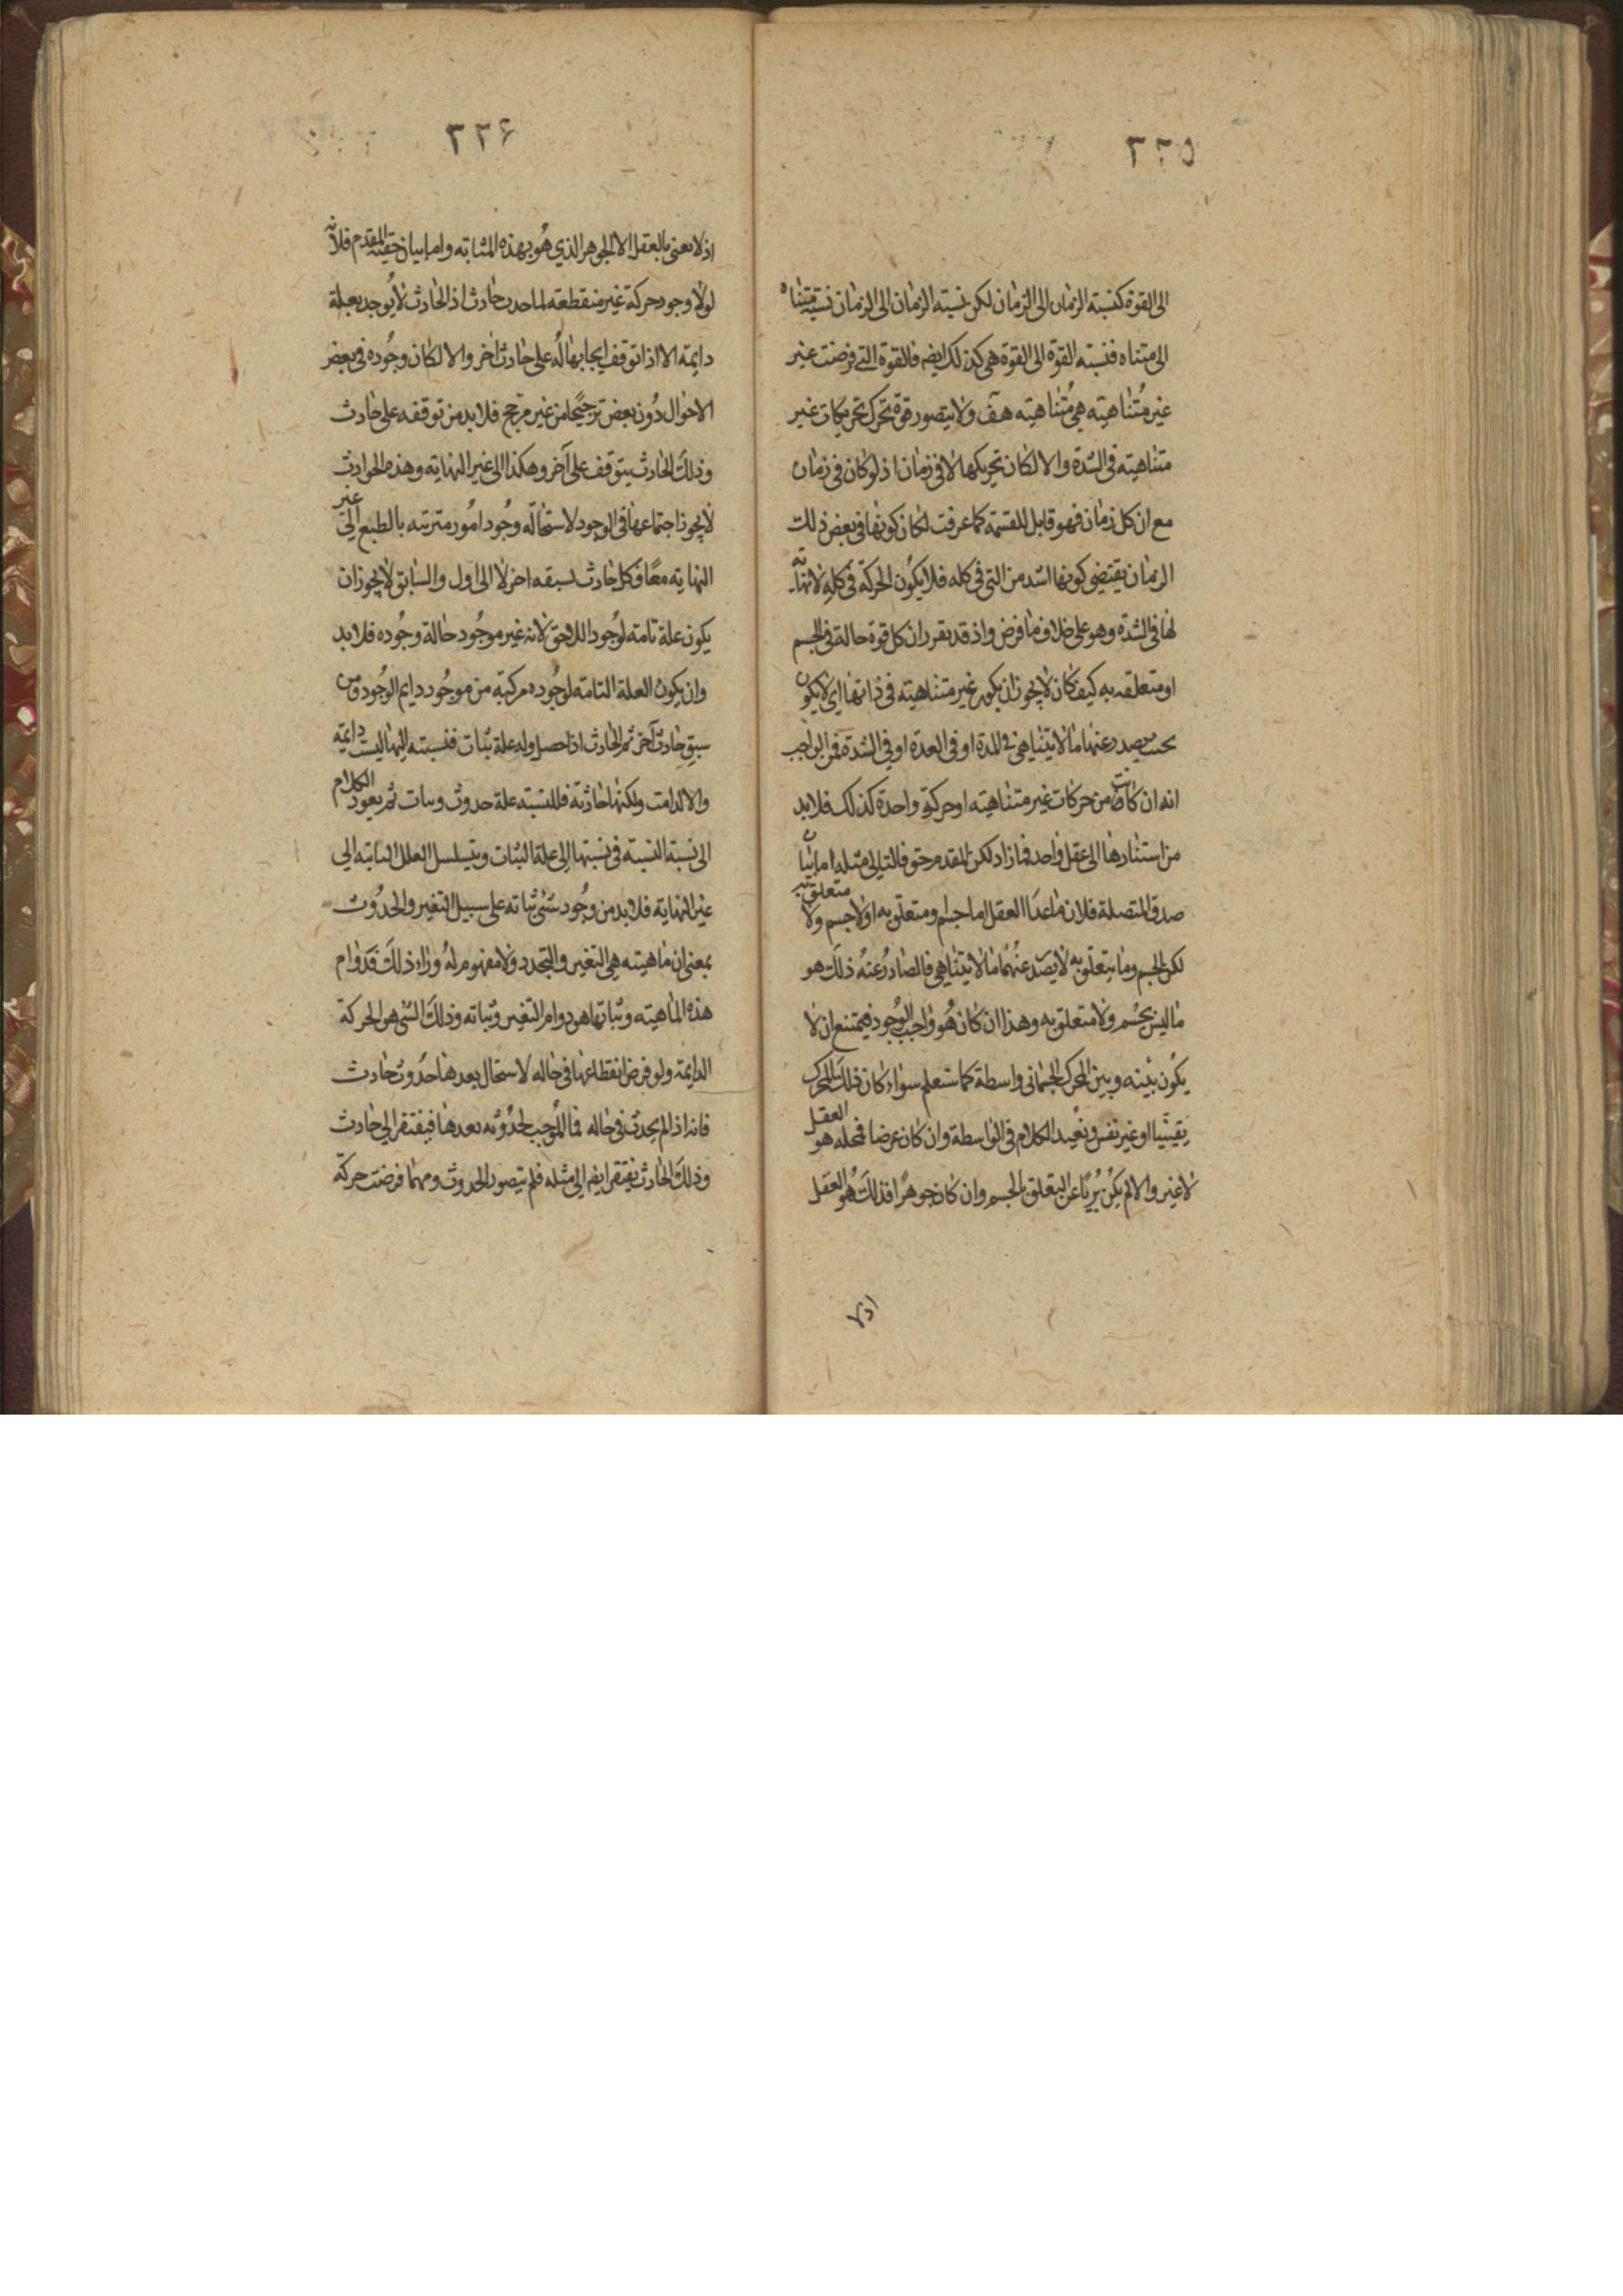 ٣٢٥
الى القوة كنسبته الزمان الى الزمان لكن نسبته الزمان الى الزمان نسبة متناه
الى متناه فنسبته القوة الى القوة هى كذلك ايضه فالقوة التى فرضت غير
غير متناهيته هى متناهيته هف ولا يتصور قوة تحرك تحريكات غير
متناهيته فى الشدة والا لكان تحريكها لا فى زمان اذ لو كان فى زمان
مع ان كل زمان فهو قابل للقسمة كما عرفت لكان كونها فى بعض ذلك
الزمان يقتضى كونها اشد من التى فى كله فلا يكون الحركة فى كله لا نهاية
لها فى الشدة وهو على خلاف ما فرض واذ قد تقرر ان كل قوة حالة فى الجسم
او متعلقه به كيف كان لا يجوز ان يكون غير متناهيته فى ذاتها اى لا يكون
بحيث يصدر عنها ما لا يتناهى فى المدة او فى العدة او فى الشدة فمن الواجب
انه ان كانت من حركات غير متناهيته او حركة واحدة كذلك فلا بد
من استنادها الى عقل واحد فما زاد لكن المقدم حق فالتالى مثله اما بيان
صدق المتصلة فلان ما عدا العقل اما جسم ومتعلق به او لا جسم ولا متعلق به
لكن الجسم وما يتعلق به لا يصدر عنهما ما لا يتناهى فالصادر عنه ذلك هو
ما ليس بجسم ولا متعلق به وهذا ان كان هو واجب الوجود فيمتنع ان لا
يكون بينه وبين المحرك الجسمانى واسطة كما ستعلم سواء كان ذلك المحرك
يقينيا او غير نفس ونعيد الكلام فى الواسطة وان كان عرضا فمحله هو العقل
لا غير والا لم يكن بريا عن التعلق بالجسم وان كان جوهرا فذلك هو العقل
اذ لا
٣٢۶
اذ لا نعنى بالعقل الا الجوهر الذى هو بهذه المثابته واما بيان حقية المقدم فلانه
لولا وجود حركة غير منقطعه لما حدث حادث اذ الحادث لا يوجد بعلة
دايمة الا اذا توقف ايجابها له على حادث اخر والا لكان وجوده فى بعض
الاحوال دون بعض ترجيحا من غير مرجح فلا بد من توقفه على حادث
وذلك الحادث يتوقف على آخر وهكذا الى غير النهايته وهذه الحوادث
لا يجوز اجتماعها فى الوجود لاستحالة وجود امور مترتبه بالطبع الى غير
النهايته معا فكل حادث لسبقه اخر لا الى اول والسابق لا يجوز ان
يكون علة تامته لوجود اللاحق لانه غير موجود حالة وجوده فلا بد
وان يكون العلة التامته لوجوده مركبة من موجود دايم الوجود ومن
سبق حادث آخر ثم الحادث اذا حصل وله علة ثبات فنسبته اليها ليست دايمة
والا لدامت ولكنها حادثة فللنسبته علة حدوث وثبات ثم يعود الكلام
الى نسبة النسبته فى نسبتها الى علة الثبات ويتسلسل العلل الثابته الى
غير النهايته فلا بد من وجود شئ ثباته على سبيل التغير والحدوث
بمعنى ان ماهيته هى التغير والتجدد ولا مفهوم له وراء ذلك فدوام
هذه الماهيته وثباتها هو دوام التغير وثباته وذلك الشئ هو الحركة
الدايمة ولو فرض انقطاعها فى حاله لاستحال بعدها حدوث حادث
فانه اذ لم يحدث فى حاله فما الموجب لحدوثه بعدها فيفتقر الى حادث
وذلك الحادث يفتقر ايضه الى مثله فلم يتصور الحدوث ومهما فرضت حركة